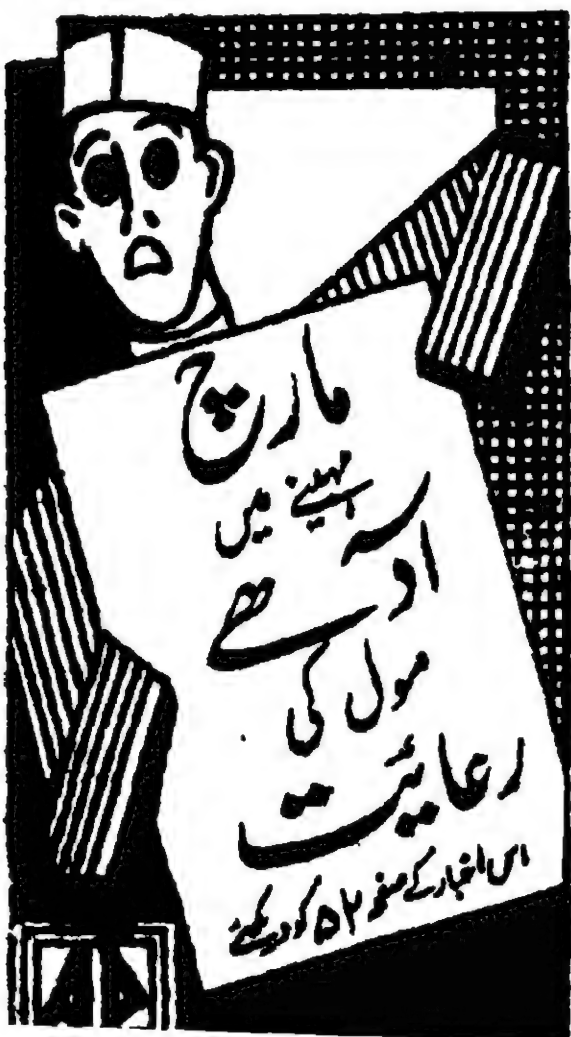 مارچ
مہینے میں
آدھے
مول کی
رعائیت
اس اخبار کے صفحہ ۵۲ کو دیکھئے